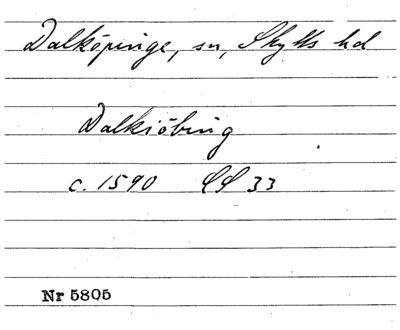 Dalköpinge, sn, Skytts hd
Dalkiöbing
c. 1590 SS 33
Nr 5805